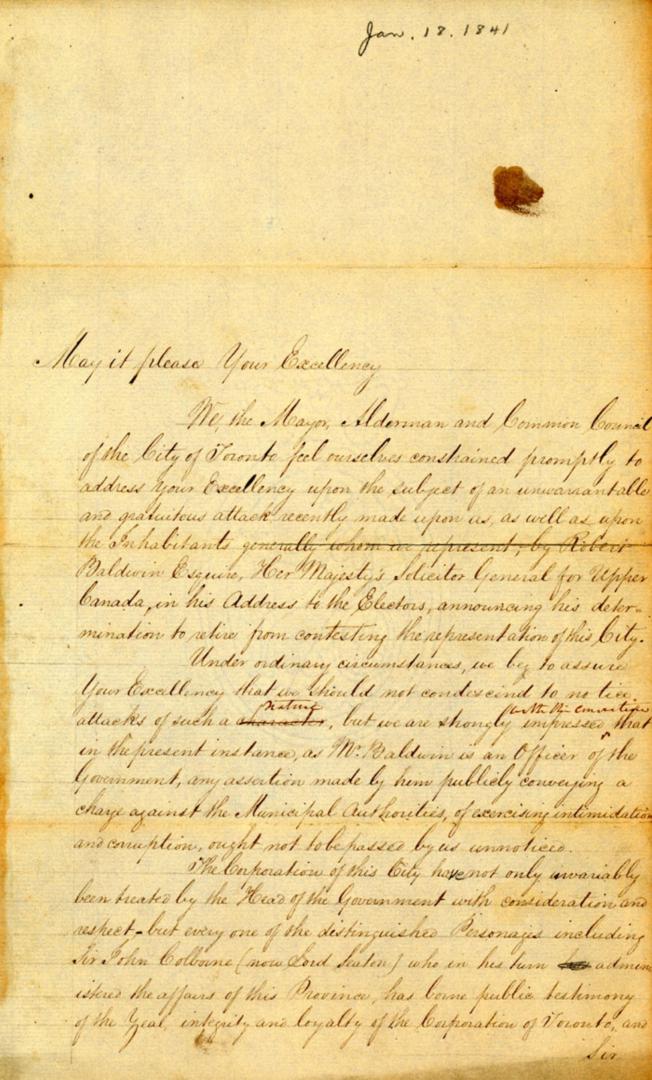 Jan. 18. 1841
May it please Your Excellency
We, the Mayor, Alderman and Common Council
of the City of Toronto feel ourselves constrained promptly to
address Your Excellency upon the subject of an unwarrantable
and gratuitous attack recently made upon us, as well as upon
the Inhabitants generally whom we represent, by Robert
Baldwin Esquire, Her Majesty's Solicitor General for Upper
Canada, in his Address to the Electors, announcing his deter-
mination to retire from contesting the representation of this City.
Under ordinary circumstances, we beg to assure
Your Excellency that we should not condescend to no tice
nature with the conviction
attacks of such a character, but we are strongly impressed that
in the present instance, as Mr. Baldwin is an Officer of the
Government, any assertion made by him publicly conveying a
charge against the Municipal Authorities, of exercising intimidation
and corruption, ought not to be passed by us unnoticed.
The Corporation of this City have not only invariably
been treated by the Head of the Government with consideration and
respect - but every one of the distinguished Personages including
Sir John Colborne (now Lord Seaton) who in his turn admin
istered the affairs of this Province, has borne public testimony
of the Zeal, integrity and loyalty of the Corporation of Toronto, and
Sir